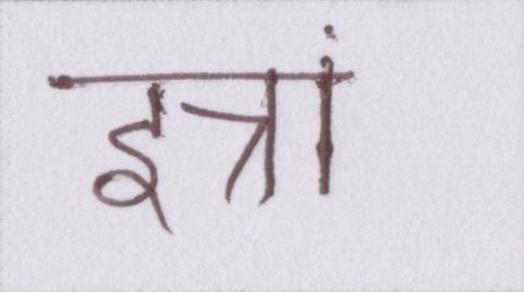 इत्रां